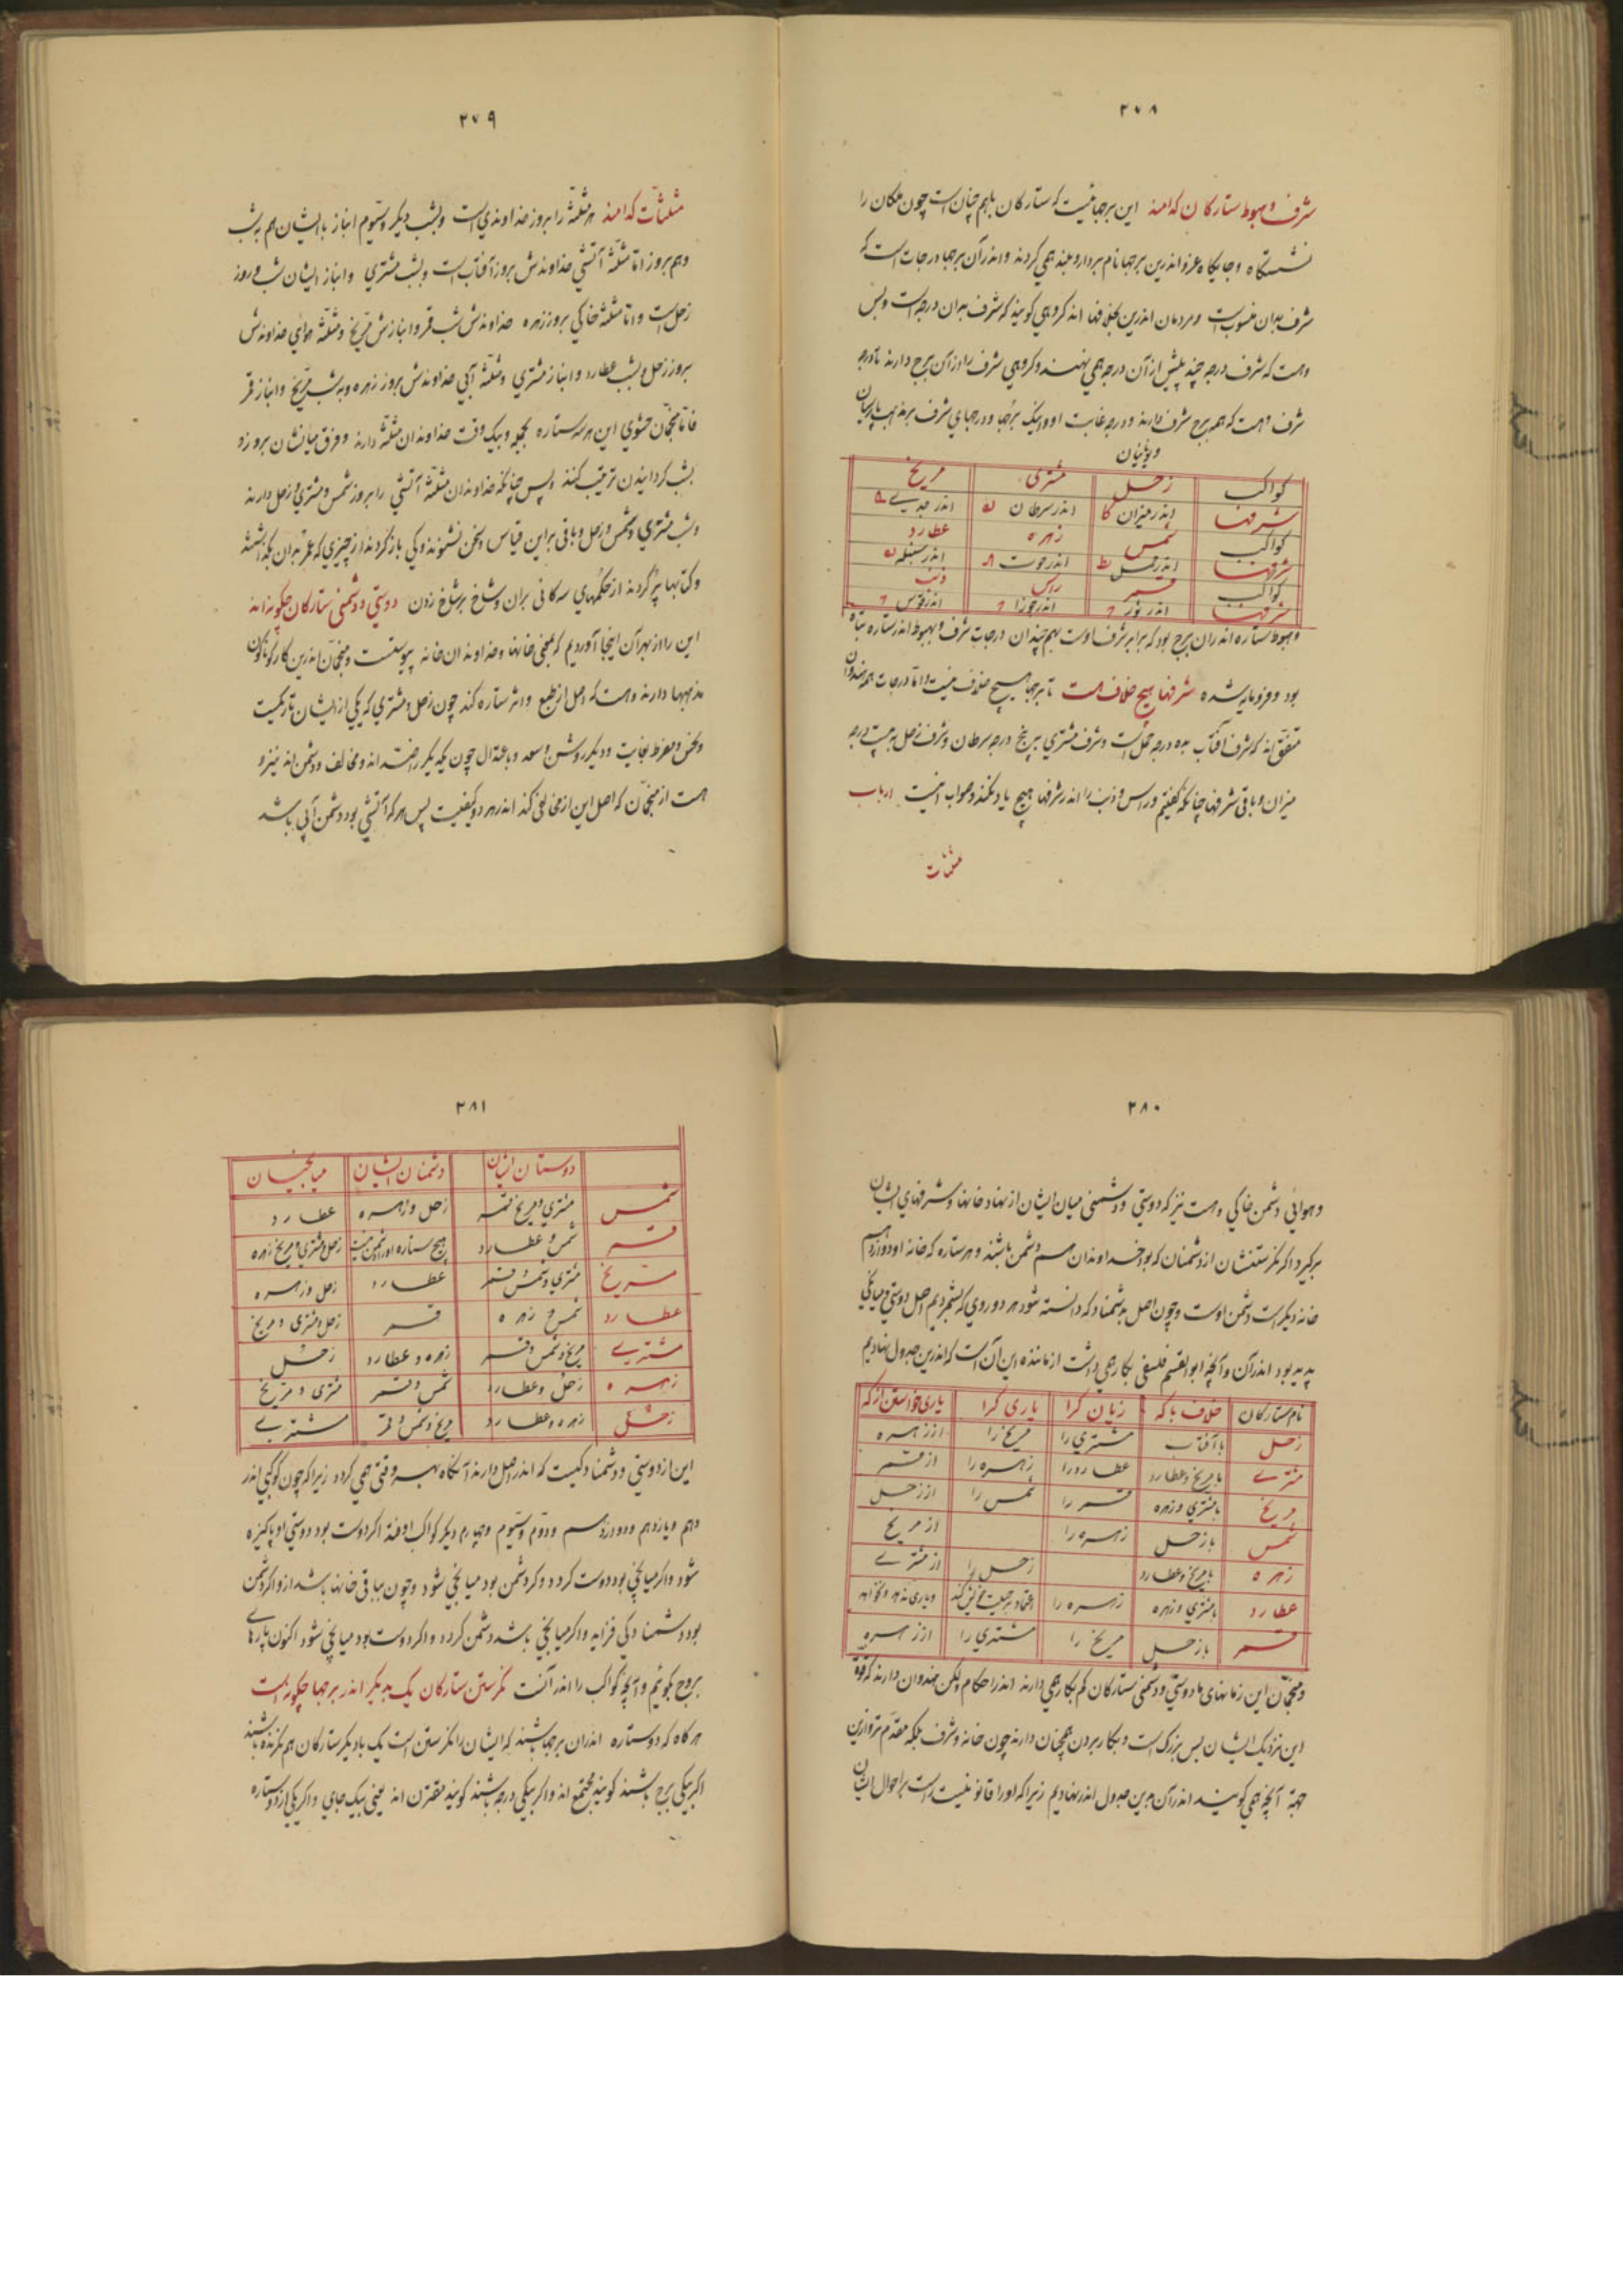 ۲۷۸
شرف و هبوط ستارکان کدامند این برجهائیست که ستارکان باهم چنان است چون ملکان را
نشستگاه و جایکاه عز و اندرین برجها نام بردار و بلند همی کردند و اندر آن برجها درجات است که
شرف بدان منسوب است و مردمان اندرین بخلافها اند کروهی کویند که شرف بدان درجه است و بس
وهست که شرف درجه چند پیش از آن درجه همی نهند و کروهی شرف را از آن برج دارند تا درجه
شرف وهست که همه برج شرف دارند و درجه غایت او و اینک برجها و درجهای شرف بر مذهب پارسیان
و یونانیان
کواکب زحل مشتری مریخ
شرفها اندر میزان کا اندر سرطان اندر جدی
کواکب شمس زهره عطارد
شرفها اندر حمل یط اندر حوت اندر سنبله
کواکب قمر راس ذنب
شرفها اندر ثور اندر جوزا اندر قوس
و هبوط ستاره اندران برج بود که برابر شرف اوست بهم چندان درجات شرف و هبوط اندر ستاره تباه
بود و فرومایه شده شرفها هیچ خلاف هست تا برجها هیچ خلاف نیست و اما درجات همه هندوان
متفق اند که شرف آفتاب بده درجه حمل است و شرف مشتری به پنج درجه سرطان و شرف زحل به بیست درجه
میزان و باقی شرفها چنانکه کفتیم و راس و ذنب را اندر شرفها هیچ یاد نکنند و صواب اینست ارباب
مثلثات
۲۷۹
مثلثات کدامند هر مثلثه را بروز خداوندی است و بشب دیکر و سیوم انباز با ایشان هم به شب
وهم بروز اما مثلثه آتشی خداوندش بروز آفتاب است و بشب مشتری و انباز ایشان شب و روز
زحل است و اما مثلثه خاکی بروز زهره خداوندش شب قمر و انبازش مریخ و مثلثه هوای خداوندش
بروز زحل و بشب عطارد و انباز مشتری و مثلثه آبی خداوندش بروز زهره و به شب مریخ و انباز قمر
فاما منجمان حشوی این هر سه ستاره بجمله و بیک وقت خداوندان مثلثه دارند و فرق میانشان بروز و
بشب کردانیدن ترتیب کنند و پس چنانکه خداوندان مثلثه آتشی را بروز شمس و مشتری و زحل دارند
و شب مشتری و شمس و زحل و باقی براین قیاس و سخن نشنوند و کی باز کردند از چیزی که عمر بدان بکذاشتند
و کتابها پر کردند از حکمهای سه کانی بران و شاخ بر شاخ زدن دوستی و دشمنی ستارکان چکونه اند
این را از بهر آن اینجا آوردیم که بعضی خانها و خداوندان خانه پیوستست و منجمان اندرین کار کوناکون
مذهبها دارند وهست که اصل از طبع و اثر ستاره کند چون زحل و مشتری که یکی از ایشان تاریکیست
و نحس و مفرط بغایت و دیکر روشن و سعد و باعتدال چون یکدیکر را ضد اند و مخالف و دشمن اند نیز و
هست از منجمان که اصل این از مخالفی کند اندر هر دو کیفیت پس هر که آتشی بود دشمن آبی باشد
۲۸۰
و هوایی دشمن خاکی وهست نیز که دوستی و دشمنی میان ایشان از نهاد خانها و شرفهای ایشان
برکیرد اکر نکرستنشان از دشمنان که بود خداوندان هم دشمن باشند و هر ستاره که خانه او دوازدهم
خانه دیکر است دشمن اوست و چون اصل بدشمناد که دانسته شود هر دو روی که بشمردیم اصل دوستی و میانکی
پدید بود اندر آن و آنچه ابوالقسم فلسفی بکار همی داشت از مانند این آن است که اندرین جدول نهادیم
نام ستارکان خلاف با که زیان کرا یاری کرا یاری خواستن از که
زحل با آفتاب مشتری را مریخ را از زهره
مشتری با مریخ و عطارد عطارد را زهره را از قمر
مریخ با مشتری و زهره قمر را شمس را از زحل
شمس با زحل زهره را از مریخ
زهره با مریخ و عطارد زحل را از مشتری
عطارد با مشتری و زهره زهره را اعتماد بر طبیعت خویش کند و یاری ندهد و نخواهد
قمر با زحل مریخ را مشتری را از زهره
و منجمان این زمانهای ما دوستی و دشمنی ستارکان کم بکار همی دارند اندر احکام ولکن هندوان دارند که قوة
این نزدیک ایشان بس بزرک است و بکار بردن همچنان دارند چون خانه و شرف بلکه مقدم تر و ازین
جهة آنچه همی کویند اندر آن برین جدول اندر نهادیم زیرا که او را قانونیست راست بر احوال ایشان
۲۸۱
دوستان ایشان دشمنان ایشان میانجیان
شمس مشتری و مریخ قمر زحل و زهره عطارد
قمر شمس و عطارد هیچ ستاره او را دشمن نیست زحل و مشتری و مریخ زهره
مریخ مشتری و شمس قمر عطارد زحل و زهره
عطارد شمس زهره قمر زحل و مشتری و مریخ
مشتری مریخ و شمس و قمر زهره و عطارد زحل
زهره زحل و عطارد شمس و قمر مشتری و مریخ
زحل زهره و عطارد مریخ و شمس و قمر مشتری
این از دوستی و دشمنادکیست که اندر اصل دارند آنکاه بهر وقتی همی کردد زیرا که چون کوکبی اندر
دهم و یازدهم و دوازدهم و دوم و سیوم و چهارم دیکر کواکب اوفتد اکر دوست بود دوستی او پاکیزه
شود و اکر میانجی بود دوست کردد و کر دشمن بود میانجی شود و چون بباقی خانها باشد ازو اکر دشمن
بود دشمنادکی فزاید و اکر میانجی باشد دشمن کردد و اکر دوست بود میانجی شود اکنون پارهای
بروج بکوئیم و آنچه کواکب را اندر آنست نکرستن ستارکان یک بدیکر اندر برجها چکونه است
هر کاه که دو ستاره اندران برجها باشند که ایشان را نکرستن است یک با دیکر ستارکان هم نکرنده باشند
اکر بیکی برج باشند کویند مجتمع اند و اکر بیکی درجه باشند کویند مقترن اند یعنی بیک جای و اکر یکی از دو ستاره